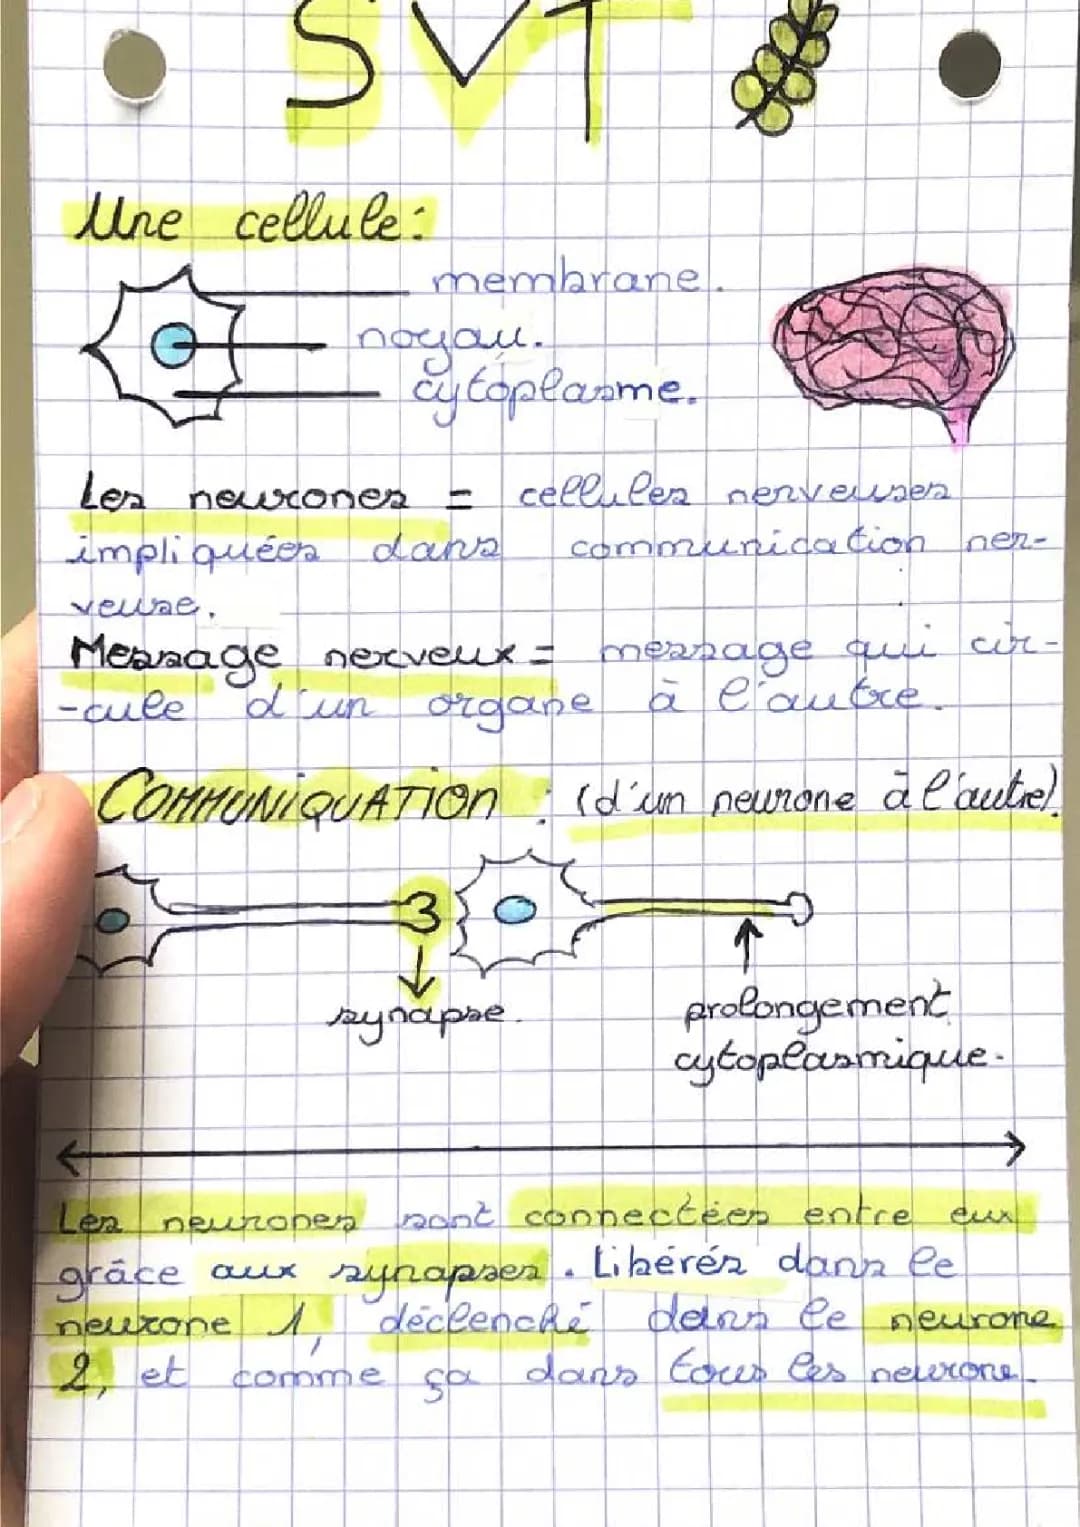 SVT
Une cellule:
membrane.
noyau.
cytoplasme.
Les neurones = cellules nerveuses
impliquées dans communication ner-
veuse.
Message nerveux = message qui cir-
-cule d'un organe à l'autre.
COMMUNiQUATiON : (d'un neurone à l'autre).
synapse.
prolongement
cytoplasmique.
Les neurones sont connectées entre eux
grâce aux synapses. Libérés dans le
neurone 1, déclenché dans le neurone
2, et comme ça dans tous les neurone.